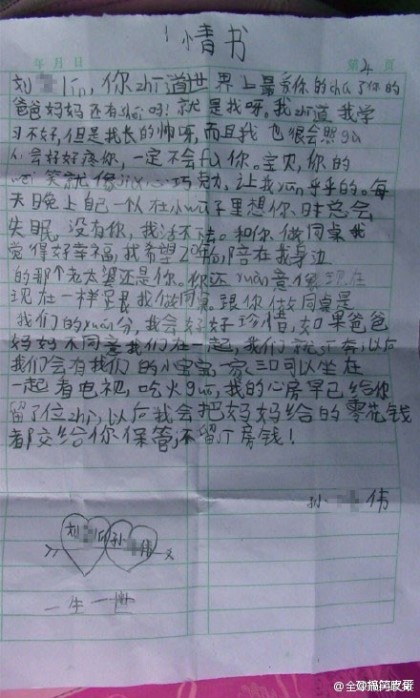 情书
年 月 日 第 页
刘 lin,你zhi道世界上最爱你的chu了你的
爸爸妈妈还有shei吗!就是我呀,我zhi道我学
习不好,但是我长的帅呀,而且我也很会照gu
会好好疼你,一定不会fu你。宝贝,你的
wei笑就像jiǎ心巧克力,让我yun乎乎的。每
天晚上自己一个人在小wu子里想你,时总会
失眠,没有你,我活不法。和你做同桌我
觉得好幸福,我希望70年后陪在我身边
的那个老太婆还是你。你还yuan意像现在
现在一样跟我做同桌。跟你做同桌是
我们的yuan分,我会好好珍惜,如果爸爸
妈妈不同意我们在一起,我们就私奔,以后
我们会有我们的小宝宝,一家三口可以坐在
一起看电视,吃火guo,我的心房早已给你
留了位zhi,以后我会把妈妈给的零花钱
都交给你保管,还留丁房钱!
孙 伟
刘 孙 伟
一生一世